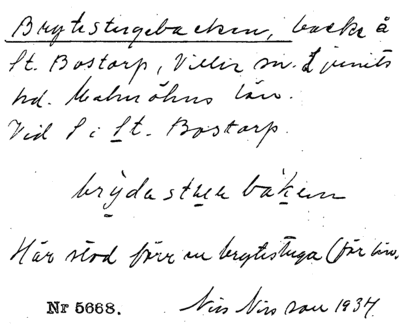 Brytestugebacken, backe å
St. Bostorp, Villie sn. Ljunits
hd. Malmöhus län.
Vid S i St. Bostorp.
brydastuabaken
Här stod förr en brytestuga (för lin.
Nr 5668. Nils Nilsson 1934